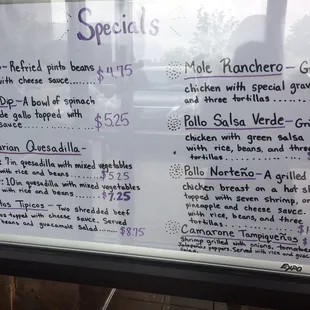 Specials
- Refried pinto beans
with cheese sauce..... $4.75
Dip - A bowl of spinach
de gallo topped with
sauce......... $5.25
arian Quesadilla -
7 in quesadilla with mixed vegetables
with rice and beans ....... $5.25
: 10 in quesadilla with mixed vegetables
with rice and beans ....... $7.25
tos Tipicos - Two shredded beef
tos topped with cheese sauce. Served
beans and guacamole salad....... $8.75
Mole Ranchero - G
chicken with special grav
and three tortillas.......
Pollo Salsa Verde - Gri
chicken with green salsa
with rice, beans, and three
tortillas..........
Pollo Norteño - A grilled
chicken breast on a hot sk
topped with seven shrimp, o
pineapple and cheese sauce.
with rice, beans, and three
tortillas........... $1
Camarone Tampiqueños
Shrimp grilled with onions, tomatoes
Jalapeno peppers. Served with rice and guac
EXPO